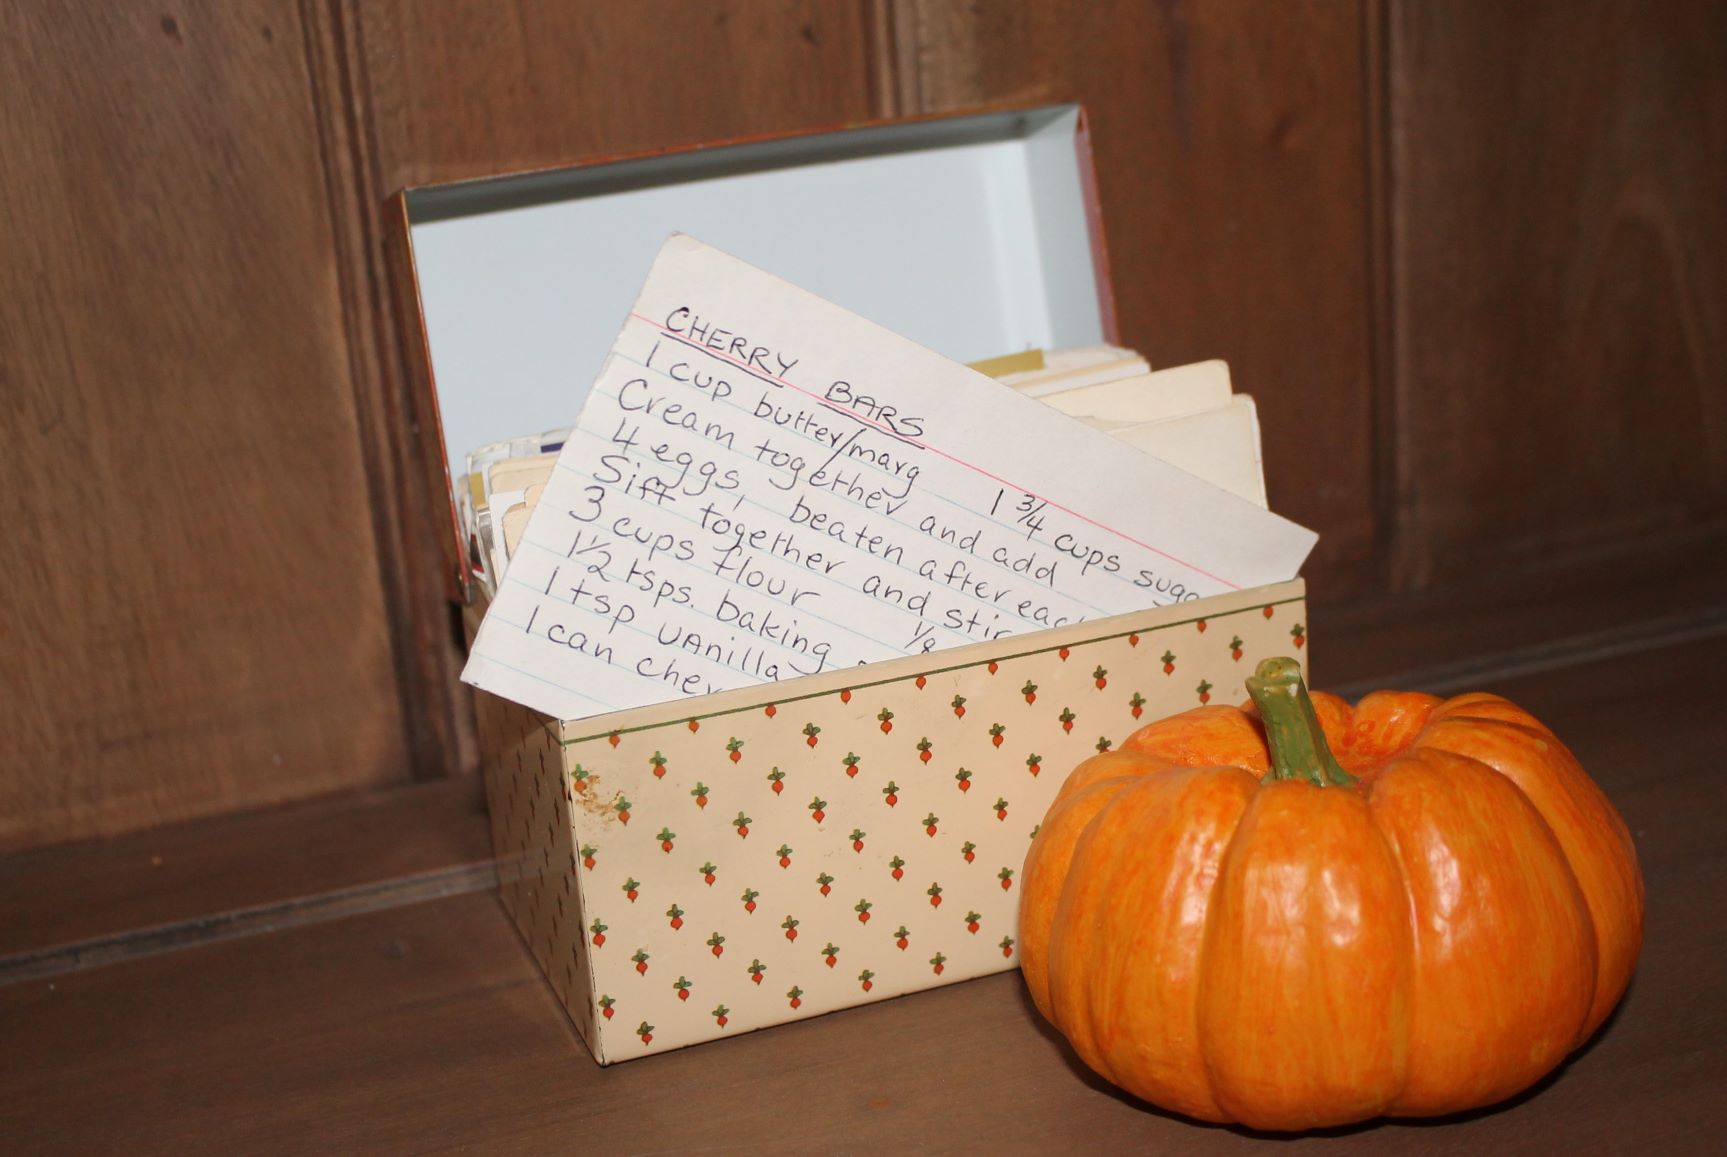 CHERRY BARS
1 cup butter/marg 1 3/4 cups suga
Cream together and add
4 eggs, beaten after eac
Sift together and stir
3 cups flour 1/8
1 1/2 tsps. baking
1 tsp vanilla
1 can cher